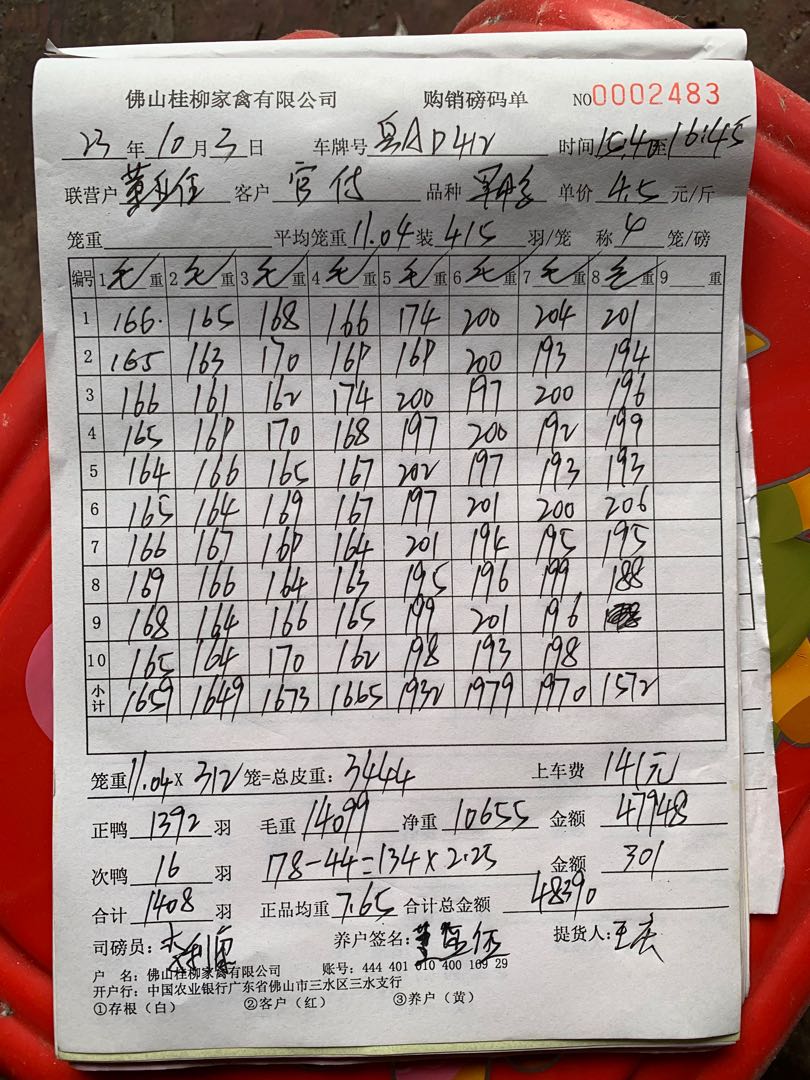 佛山桂柳家禽有限公司 购销磅码单 NO0002483
23年10月3日 车牌号 粤AD412 时间 15:4 至 16:45
联营户 董 客户 官付 品种 单价 4.5 元/斤
笼重 平均笼重 11.04 装 4.15 羽/笼 称 4 笼/磅
编号 1 毛 重 2 毛 重 3 毛 重 4 毛 重 5 毛 重 6 毛 重 7 毛 重 8 毛 重 9 重
1 166 165 168 166 174 200 204 201
2 165 163 170 169 169 200 193 194
3 166 161 162 174 200 197 200 196
4 165 169 170 168 197 200 192 199
5 164 166 165 167 202 197 193 193
6 165 164 169 167 197 201 200 206
7 166 167 169 164 201 194 195 195
8 169 166 164 163 195 196 199 188
9 168 164 166 165 199 201 196
10 165 164 170 162 198 193 198
小计 1659 1649 1673 1665 1932 1979 1970 1572
笼重 11.04 X 312 笼=总皮重: 3444 上车费 141元
正鸭 1392 羽 毛重 14099 净重 10655 金额 47948
次鸭 16 羽 178-44=134×2.25 金额 301
合计 1408 羽 正品均重 7.65 合计总金额 48390
司磅员: 养户签名: 董 提货人: 王
户 名: 佛山桂柳家禽有限公司 账号: 444 401 010 400 169 29
开户行: 中国农业银行广东省佛山市三水区三水支行
①存根（白） ②客户（红） ③养户（黄）